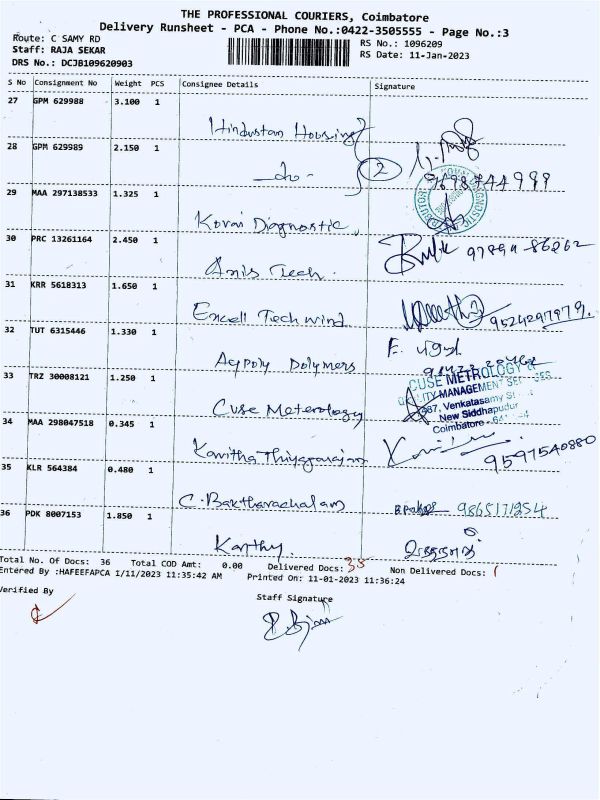 THE PROFESSIONAL COURIERS, Coimbatore
Delivery Runsheet - PCA - Phone No.:0422-3505555 - Page No.:3
Route: C SAMY RD
RS No.: 1096209
Staff: RAJA SEKAR
RS Date: 11-Jan-2023
DRS No.: DCJB109620903
S No Consignment No Weight PCS Consignee Details Signature
27 GPM 629988 3.100 1 Hindustan Housing
28 GPM 629989 2.150 1 -do- 2
29 MAA 297138533 1.325 1 Kovai Diagnostic
30 PRC 13261164 2.450 1 Anis Tech. 97894 86262
31 KRR 5618313 1.650 1 Excell Techwind 9524297979.
32 TUT 6315446 1.330 1 Acpoly Polymers
33 TRZ 30008121 1.250 1 Cuse Meterology
CUSE METROLOGY
QUALITY MANAGEMENT SERVICES
New Siddhapudur
34 MAA 298047518 0.345 1 Kavitha Thiyagarajan 9597540880
35 KLR 564384 0.480 1 C. Baktharachalam 9865171254
36 PDK 8007153 1.850 1 Karthy
Total No. Of Docs: 36 Total COD Amt: 0.00 Delivered Docs: 35 Non Delivered Docs: 1
Entered By :HAFEEFAPCA 1/11/2023 11:35:42 AM Printed On: 11-01-2023 11:36:24
Verified By
Staff Signature